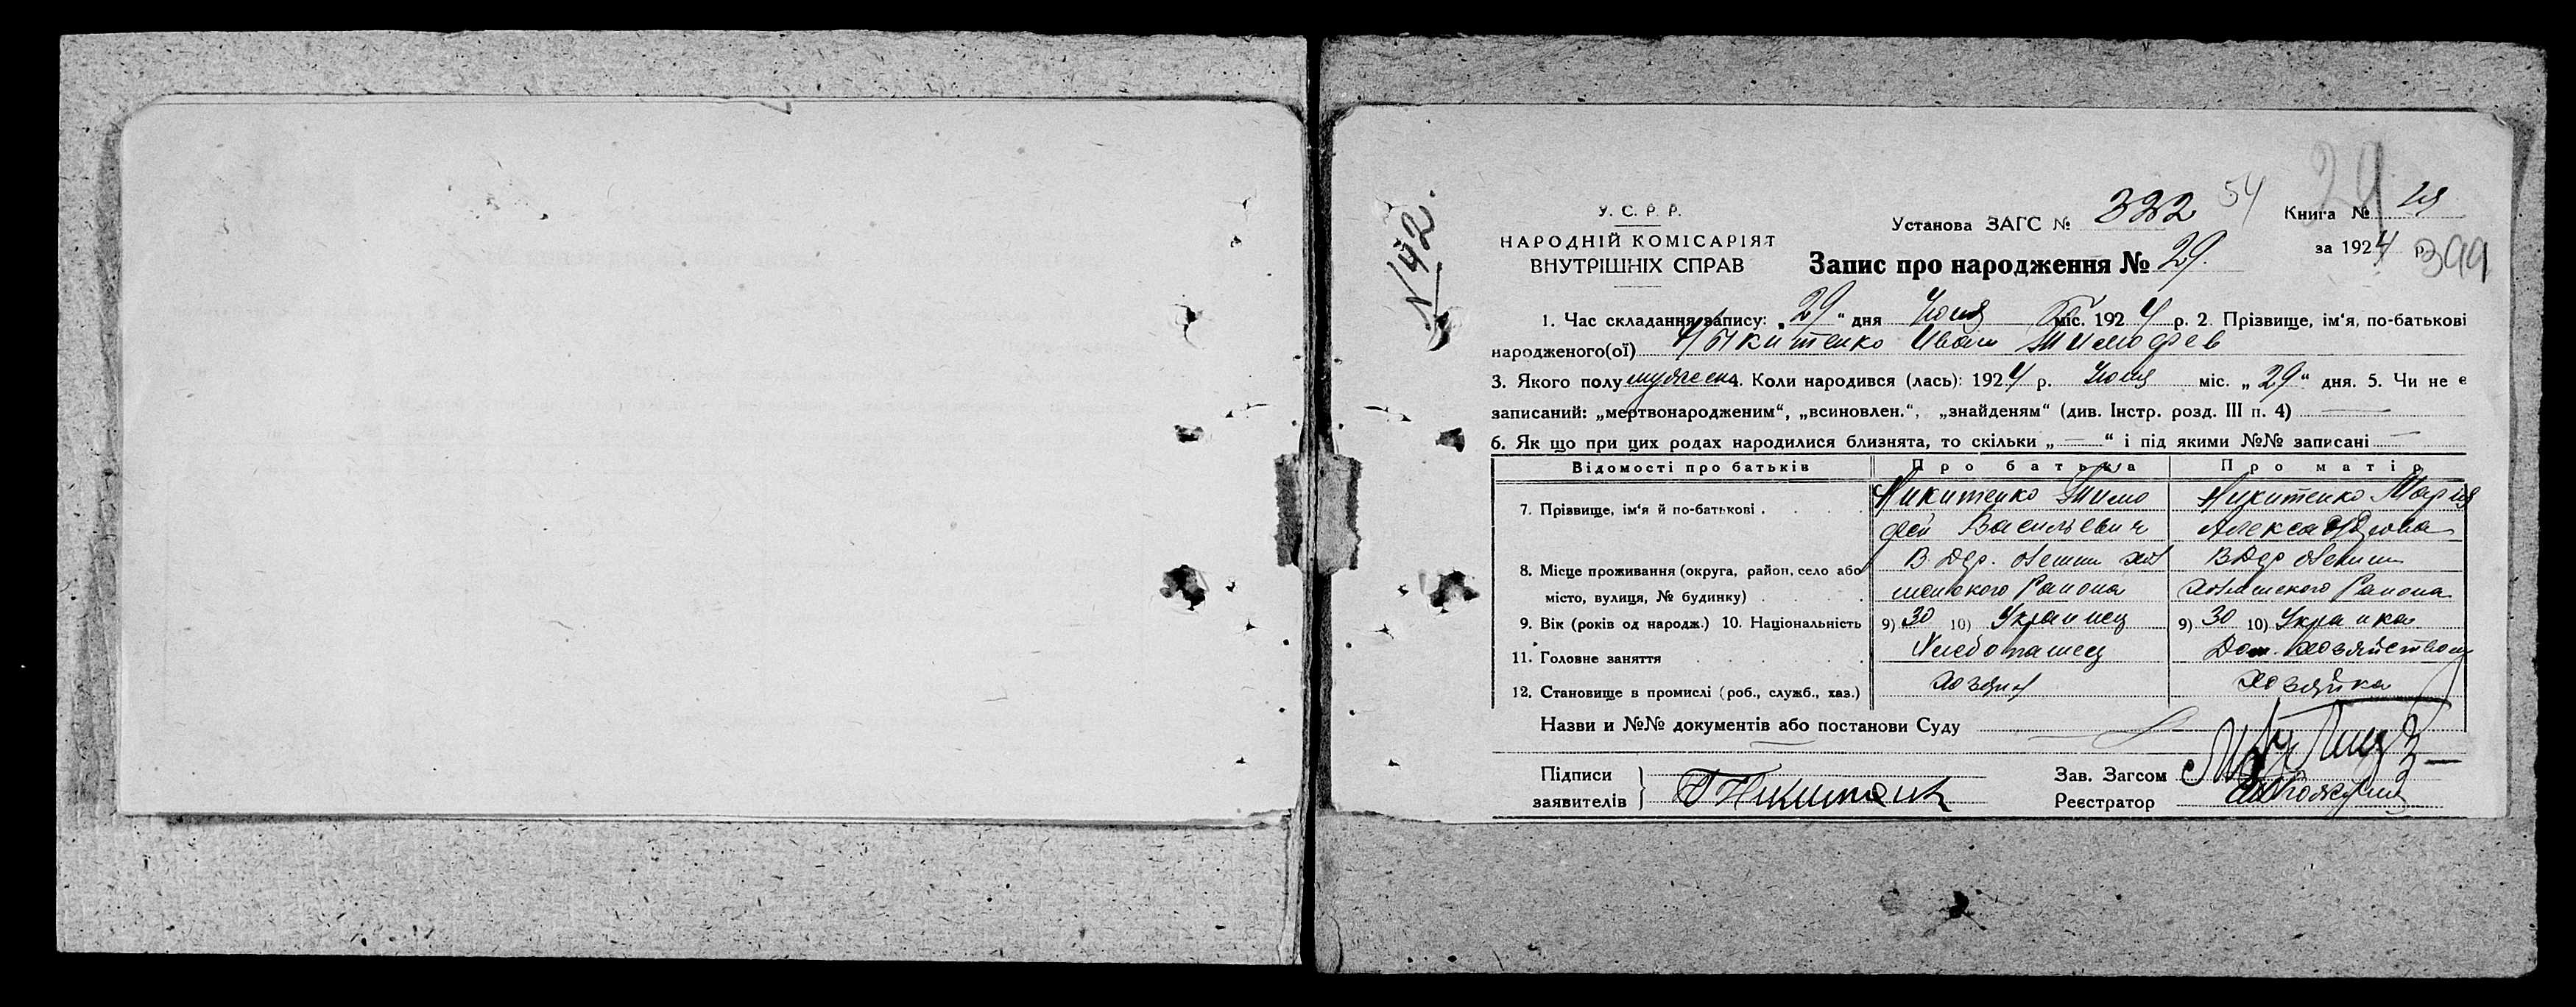 № 42.
У. С. Р. Р.
НАРОДНІЙ КОМІСАРІЯТ
ВНУТРІШНІХ СПРАВ
Установа ЗАГС № 332 54 Книга №
29
за 1924 р. 399
Запис про народження № 29.
1. Час складання запису: „29“ дня міс. 1924 р. 2. Прізвище, ім‘я, по-батькові
народженого(ої) Никитенко Иван Тимофеев
3. Якого полу мужеск 4. Коли народився (лась): 1924 р. міс. „29“ дня. 5. Чи не є
записаний: „мертвонародженим“, „всиновлен.“, „знайденям“ (див. Інстр. розд. III п. 4) —
6. Як що при цих родах народилися близнята, то скільки „—“ і під якими №№ записані —
Відомості про батьків Про батька Про матір
7. Прізвище, ім‘я й по-батькові . Никитенко Тимо Никитенко Мария
фей Васильевич Александровна
8. Місце проживання (округа, район, село або В дер. В дер
місто, вулиця, № будинку) . Района Района
9. Вік (років од народж.) 10. Національність 9) 30 10) Украинец 9) 30 10) Украинка
11. Головне заняття Хлебопашец Дом. хозяйством
12. Становище в промислі (роб., служб., хаз.) хозяин хозяйка
Назви и №№ документів або постанови Суду
Підписи
заявителів } Т Никитенк
Зав. Загсом
Реєстратор